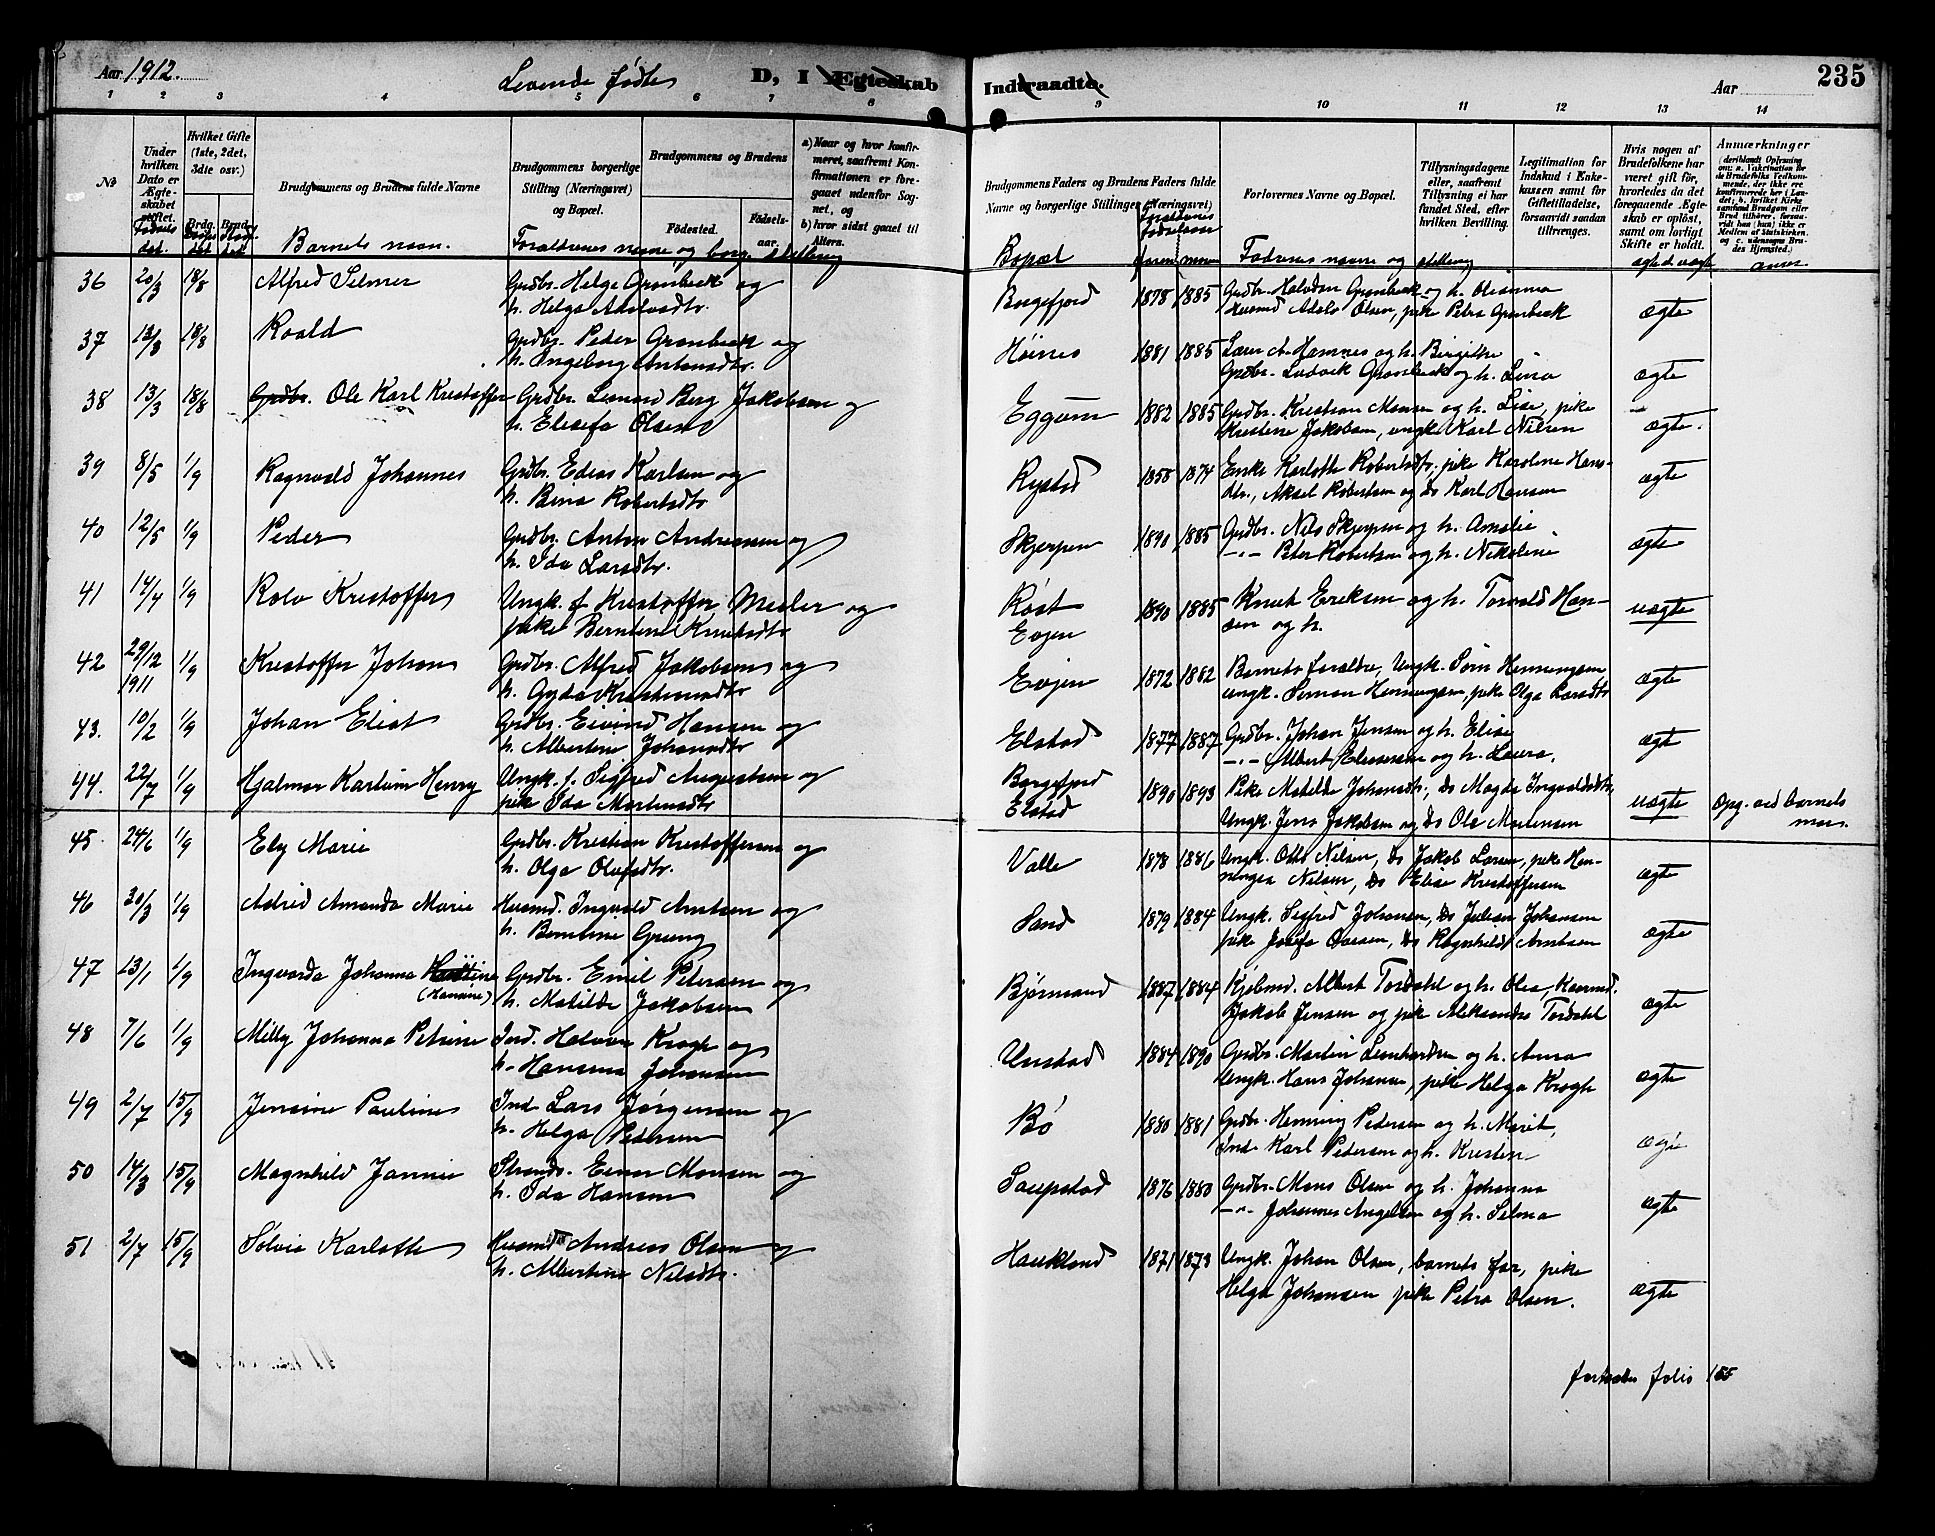 Aar 1912. Levende fødte D, I Ægteskab Indtraadte. Aar 235
1 2 3 4 5 6 7 8 9 10 11 12 13 14
No
Under hvilken Dato er Ægteskabet stiftet.
Hvilket Gifte (1ste, 2det, 3die osv.)
Brdg. Brud.
Brudgommens og Brudens fulde Navne
Brudgommens borgerlige Stilling (Næringsvei) og Bopæl.
Brudgommens og Brudens
Födested. Födsels-aar.
a) Naar og hvor konfirmeret, saafremt Konfirmationen er foregaaet udenfor Sognet, og
b) hvor sidst gaaet til Alters.
Brudgommens Faders og Brudens Faders fulde Navne og borgerlige Stillinger (Næringsvei)
Forlovernes Navne og Bopæl.
Tillysningsdagene eller, saafremt Tillysning ei har fundet Sted, efter hvilken Bevilling.
Legitimation for Indskud i Enkekassen samt for Giftetilladelse, forsaavidt saadan tiltrænges.
Hvis nogen af Brudefolkene har været gift för, hvorledes da det foregaaende Ægteskab er oplöst, samt om lovligt Skifte er holdt.
Anmærkninger
Fødselsdat. Barnets navn. Forældrenes navne og borg. stilling Bopæl Forældrenes fødselsaar Faddernes navne og stilling ægte el. uægte anm.
36 20/3 18/8 Alfred Selmer Grdbr. Helge Grønbeck og
h. Helga Adolvsdtr. Borgefjord 1878 1885 Grdbr. Halvdan Grønbeck og h. Oleanna
Husmd Adolv Olsen, pike Petra Grønbeck ægte
37 12/3 18/8 Roald Grdbr. Peder Grønbeck og
h. Ingeborg Antonsdtr. Höines 1881 1885 Lærer A. Hamnes og h. Birgithe
Grdbr. Ludvik Grønbeck og h. Lina ægte
38 13/3 18/8 Grdbr. Ole Karl Kristoffer Grdbr. Leonard Berg Jakobsen og
h. Elesefa Olsen Eggum 1882 1885 Grdbr. Kristian Monsen og h. Lise, pike
Kristine Jakobsen, ungk. Karl Nilsen ægte.
39 8/5 1/9 Ragnvald Johannes Grdbr. Edias Karlsen og
h. Berna Robertsdtr Rystad 1858 1874 Enke Karlotte Robertsdtr., pike Karoline Hans-
dtr., Aksel Robertsen og Do Karl Hansen ægte
40 12/5 1/9 Peder Grdbr. Anton Andreasen og
h. Ida Larsdtr. Skjerpen 1890 1885 Grdbr. Nils Skjerpen og h. Amalie
-"- Peter Robertsen og h. Nikoline ægte
41 14/4 1/9 Rolv Kristoffer Ungk. f. Kristoffer Meeler og
pike Berntine Knutsdtr Röst
Evjen 1890 1885 Knut Eriksen og h. Torvald Han-
sen og h. uægte
42 29/12 1911 1/9 Kristoffer Johan Grdbr. Alfred Jakobsen og
h. Gyda Kristensdtr Evjen 1872 1882 Barnets forældre, Ungk. Jörn Henningsen
ungk. Simon Henningsen, pike Olga Larsdtr ægte
43. 10/2 1/9 Johan Eliot Grdbr. Eivind Hansen og
h. Albertine Johansdtr Elstad 1877 1887 Grdbr. Johan Jensen og h. Elise
-"- Albert Eliesersen og h. Laura. ægte
44. 22/7 1/9 Hjalmar Karluin Henry Ungk. f. Sigfred Augustsen og
pike Ida Mortensdtr Borgefjord
Elstad 1890 1893 Pike Matilde Johansdtr, Do Magda Ingvaldsdtr,
Ungk. Jens Jakobsen og Do Ole Mortensen uægte Opg. ved barnets
mor.
45. 24/6 1/9 Ely Marie Grdbr. Kristian Kristoffersen og
h. Olga Olufsdtr. Valle 1878 1886 Ungk. Otto Nilsen, Do Jakob Larsen, pike Hen-
ningea Nilsen, Do Elise Kristoffersen ægte
46 30/3 1/9 Astrid Amanda Marie Husmd. Ingvald Arntsen og
h. Berntine Grung Sand 1879 1884 Ungk. Sigfred Johansen, Do Julian Johansen
pike Josefa Ovesen, Do Ragnhild Arntsen ægte
47 13/1 1/9 Ingvarda Johanna
(Hansine) Grdbr. Emil Petersen og
h. Matilde Jakobsen Björnsand 1887 1884 Kjöbmd. Albert Tordahl og h. Olea, Husmd.
Jakob Jensen og pike Aleksandra Tordahl ægte
48 7/6 1/9 Milly Johanna Petrine Ind. Halvor Krogh og
h. Hansina Johansen Unstad 1884 1890 Grdbr. Martin Leonhardsen og h. Anna
Ungk. Hans Johansen, pike Helga Krogh ægte
49 2/7 15/9 Jensine Pauline Ind Lars Jörgensen og
h. Helga Pedersen Bö 1880 1881 Grdbr. Henning Pedersen og h. Marit,
Ind. Karl Pedersen og h. Kristin ægte
50 14/3 15/9 Magnhild Jannie Strands. Einar Monsen og
h. Ida Hansen Saupstad 1876 1880 Grdbr. Mons Olsen og h. Johanna
-"- Johannes Angelsen og h. Selma ægte
51 2/7 15/9 Solvia Karlotte Husmd Andreas Olsen og
h. Albertine Nilsdtr. Haukland 1871 1873 Ungk. Johan Olsen, barnets far, pike
Helga Johansen pike Petra Olsen. ægte
fortsættes folio 155